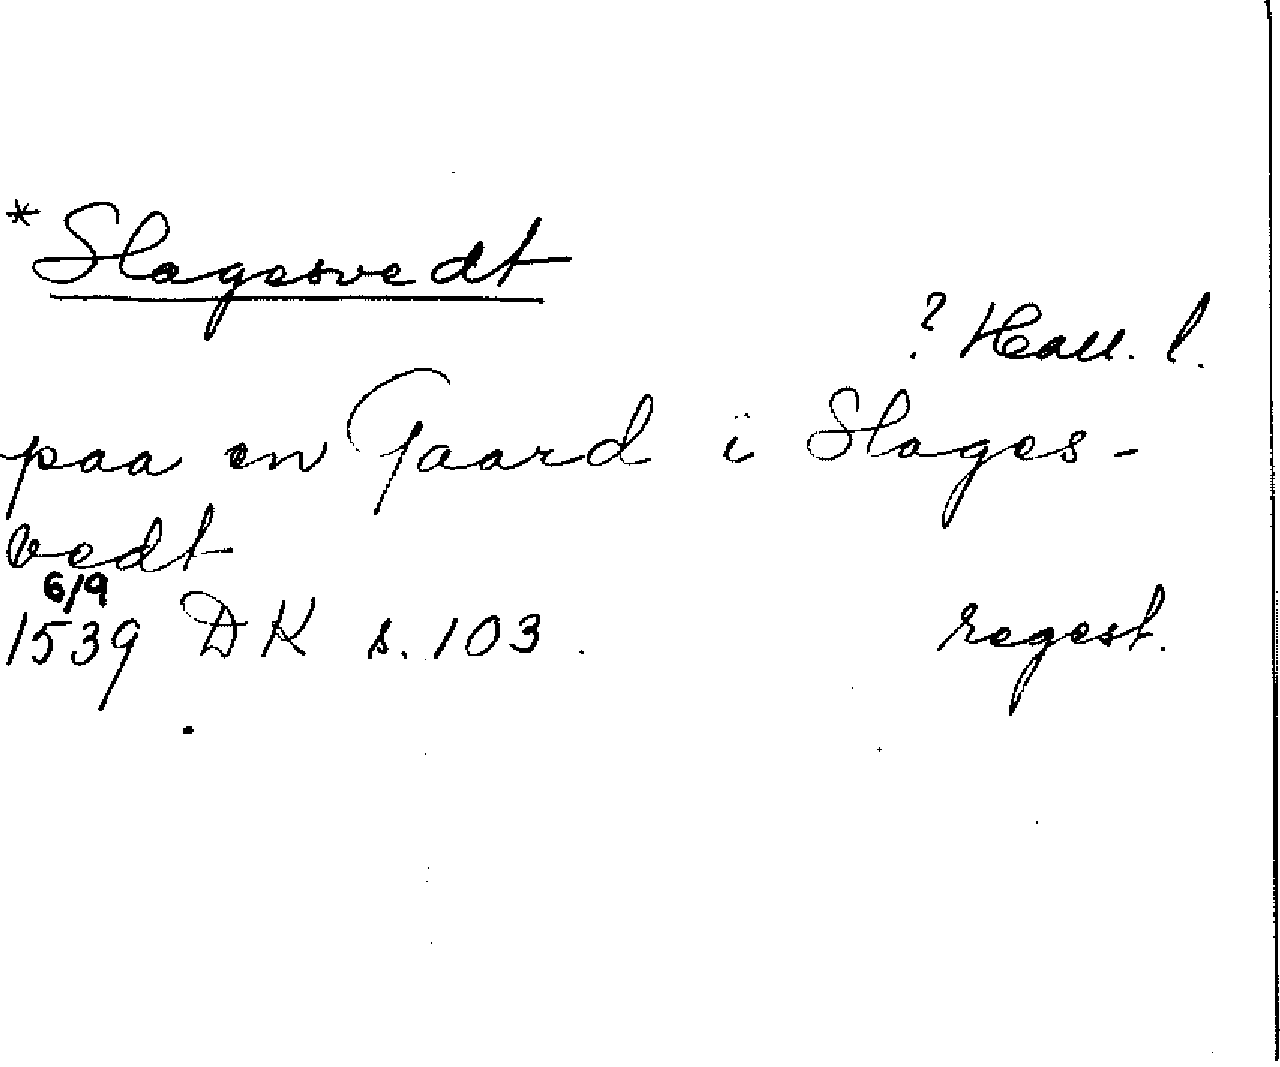 *Slagesvedt
? Hall. l.
paa en Gaard i Slages-
vedt
6/9
1539 DK s. 103. regest.